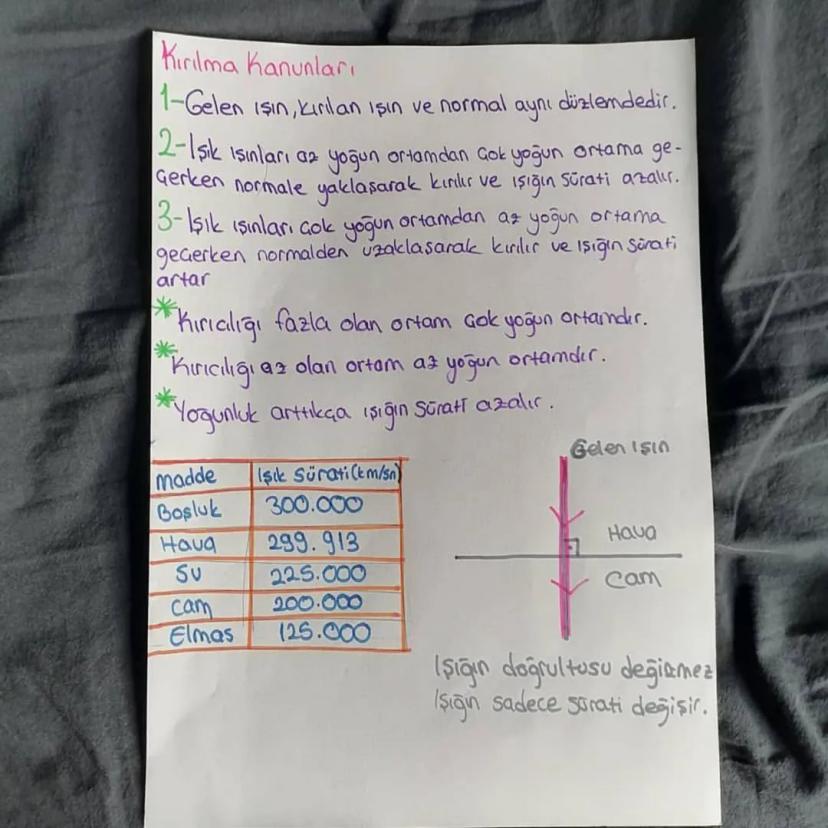 Kırılma Kanunları
1-Gelen ışın, kırılan ışın ve normal aynı düzlemdedir.
2-Işık ışınları az yoğun ortamdan çok yoğun ortama ge-
çerken normale yaklaşarak kırılır ve ışığın sürati azalır.
3-Işık ışınları çok yoğun ortamdan az yoğun ortama
geçerken normalden uzaklaşarak kırılır ve ışığın sürati
artar
*Kırıcılığı fazla olan ortam çok yoğun ortamdır.
*Kırıcılığı az olan ortam az yoğun ortamdır.
*Yoğunluk arttıkça ışığın sürati azalır.
madde Işık Sürati (km/sn)
Boşluk 300.000
Hava 299.913
Su 225.000
cam 200.000
Elmas 125.000
Gelen ışın
Hava
Cam
Işığın doğrultusu değişmez
Işığın sadece sürati değişir.